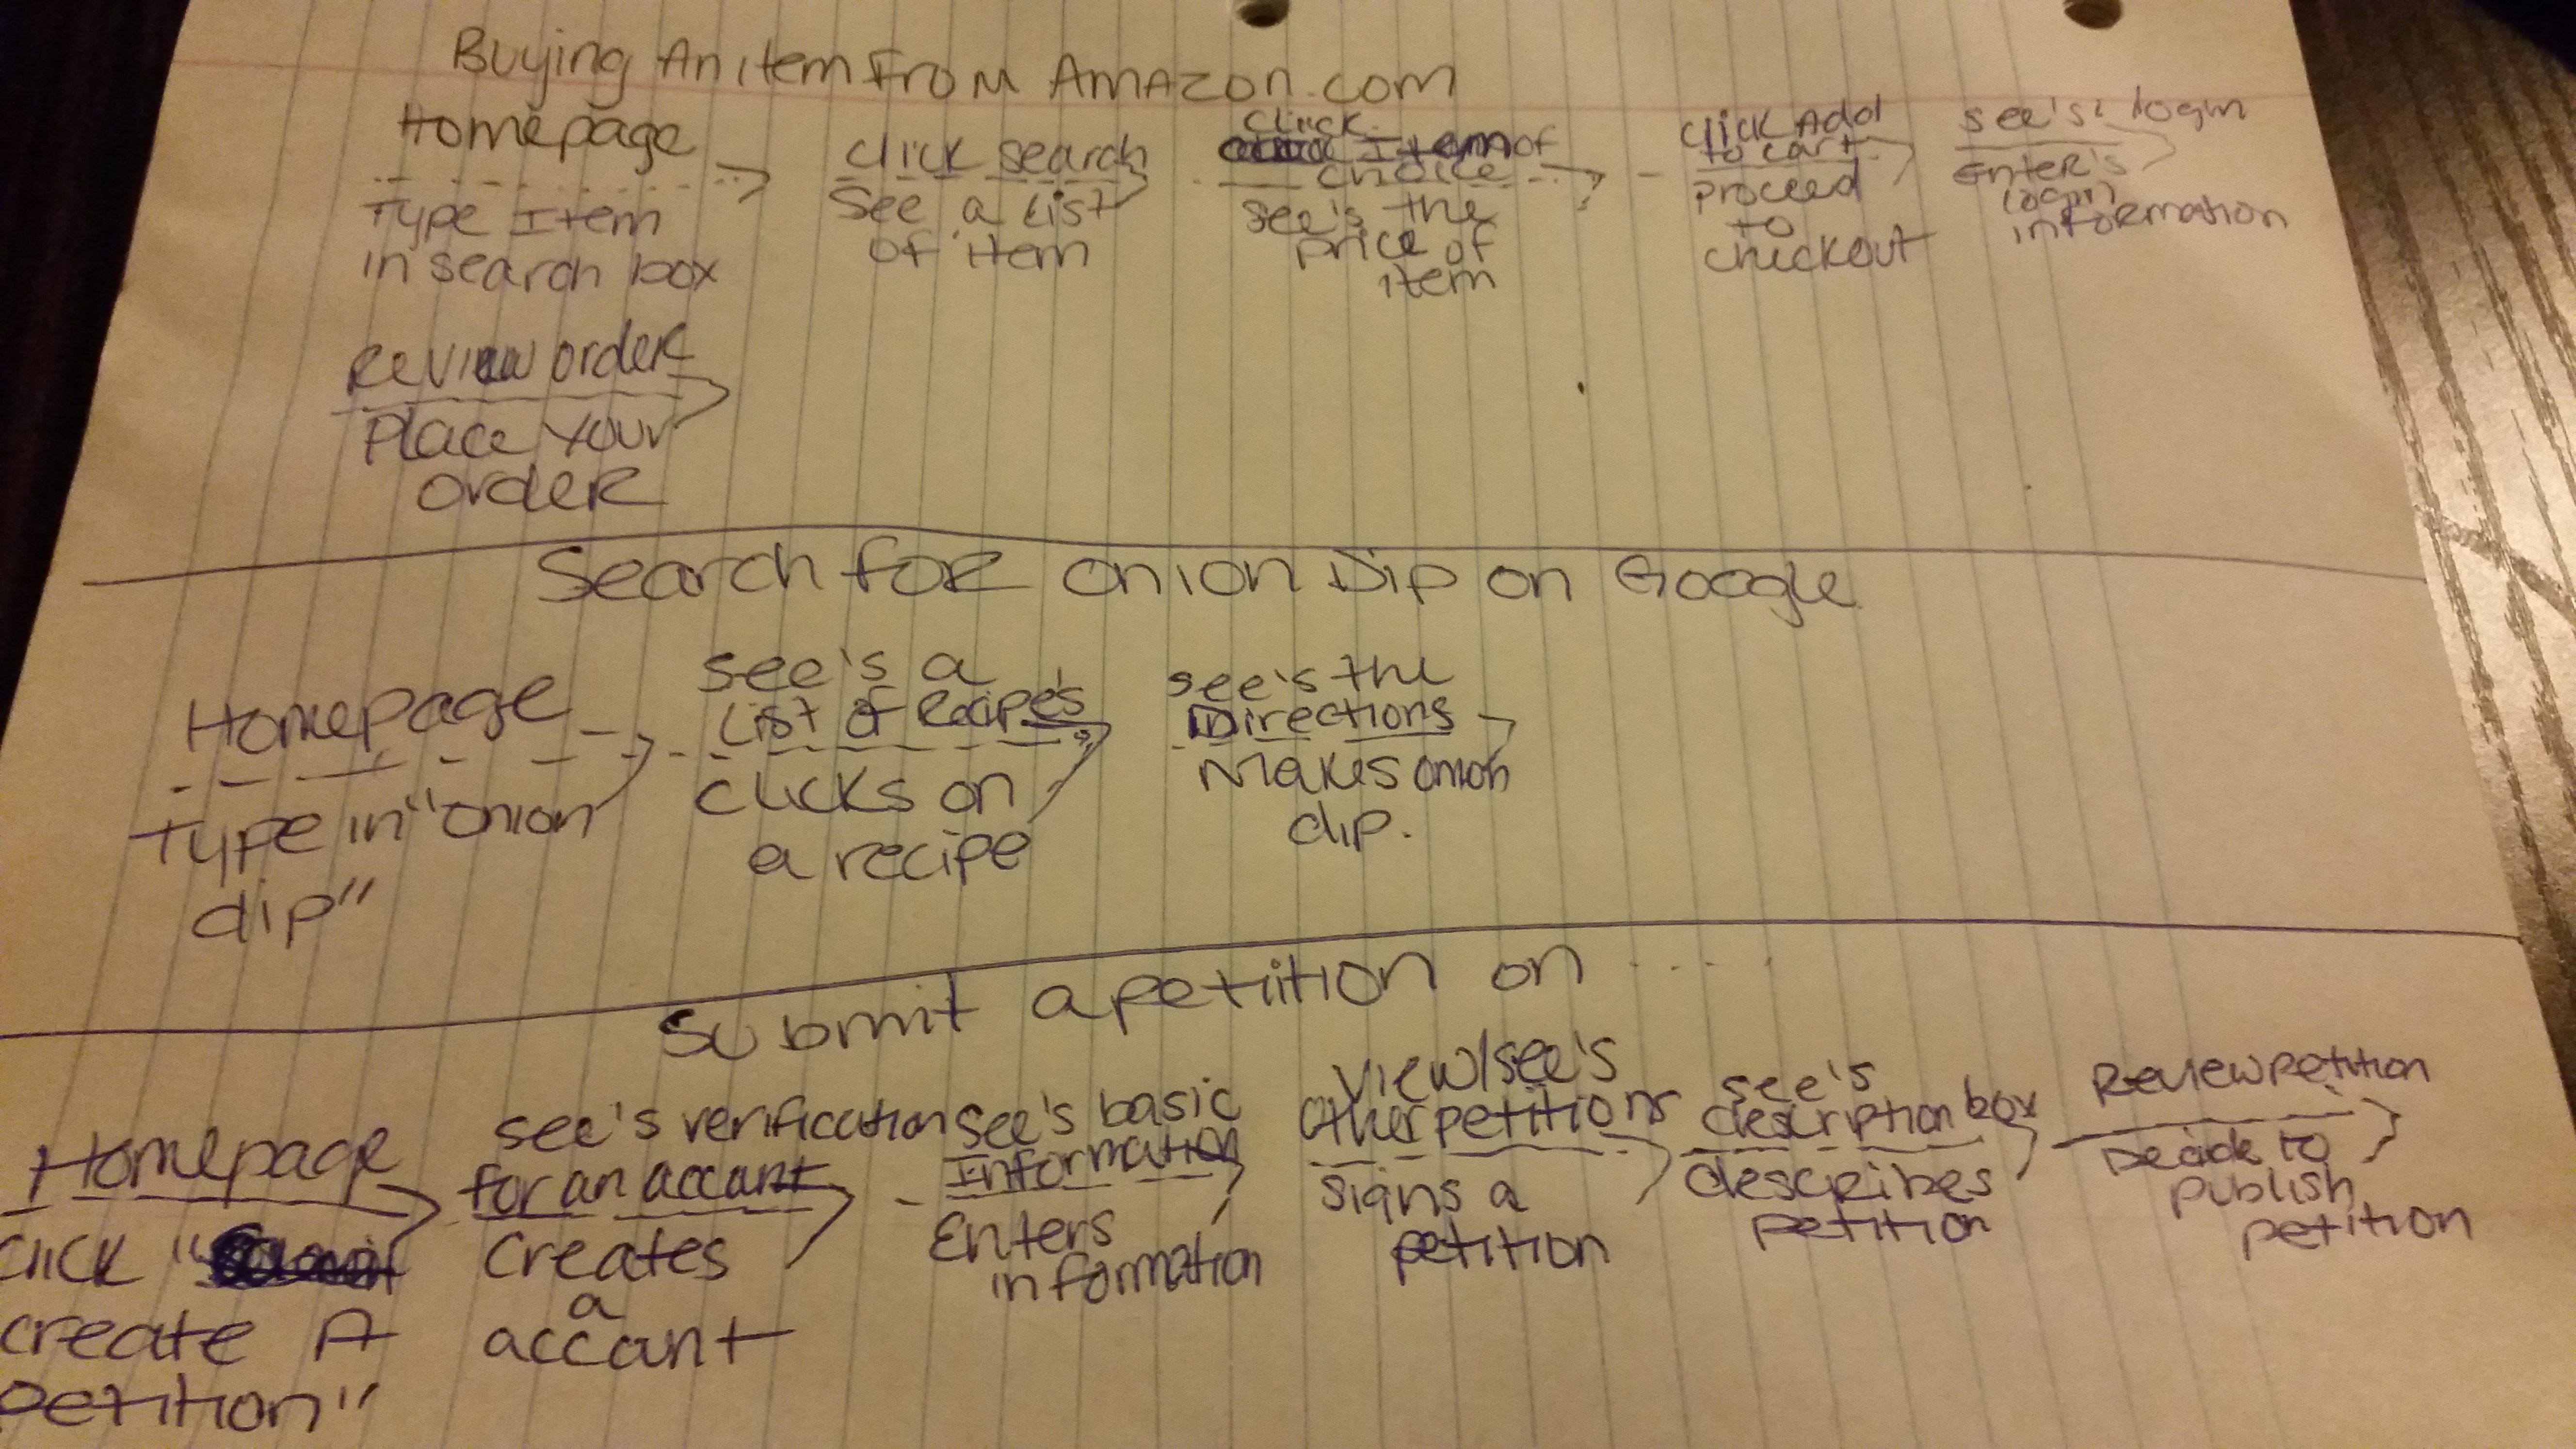 Buying An item From Amazon.com
Homepage
Type Item
in search box
click search
See a List
of item
click
Item of
choice
see's the
price of
item
click Add
to cart
proceed
to
checkout
see's: login
enter's
login
information
Review order
Place your
order
Search for onion Dip on Google
Homepage
Type in "onion
dip"
see's a
List of Recipe's
clicks on
a recipe
see's the
Directions
Makes onion
dip.
Submit a petition on ....
Homepage
click "
create A
petition"
see's verification
for an accant
creates
a
accant
see's basic
Information
Enters
information
View/see's
other petitions
signs a
petition
see's
description box
describes
petition
Review petition
Decide to
publish
petition